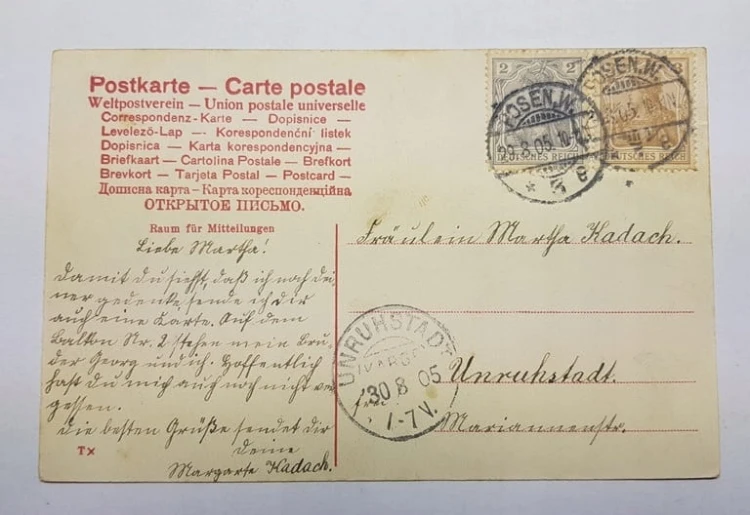 Postkarte — Carte postale
Weltpostverein — Union postale universelle
Correspondenz-Karte — Dopisnice —
Levelező-Lap — Korespondenční listek
Dopisnica — Karta korespondencyjna —
Briefkaart — Cartolina Postale — Brefkort
Brevkort — Tarjeta Postal — Postcard —
Дописна карта — Карта кореспонденційна
ОТКРЫТОЕ ПИСЬМО.
Raum für Mitteilungen
Liebe Martha!
Damit du siehst, daß ich noch dei
ner gedenke, sende ich dir
auch eine Karte. Auf dem
Balkon Nr. 2 stehen mein Bru
der Georg und ich. Hoffentlich
hast du mich auch noch nicht ver
gessen.
Die besten Grüße sendet dir
deine
Margarte Kadach.
Tx
2 2
DEUTSCHES REICH
POSEN.W.
28.8.05.
3
DEUTSCHES REICH
POSEN.W.
Fräulein Martha Kadach.
UNRUHSTADT
30 8 05
7V.
Unruhstadt.
Mariannenstr.